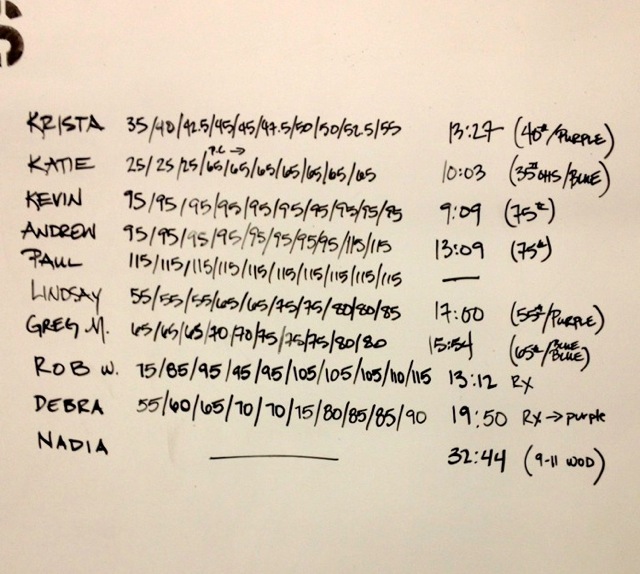 KRISTA 35/40/42.5/45/45/47.5/50/50/52.5/55 13:27 (40#/PURPLE)
P.C →
KATIE 25/25/25/65/65/65/65/65/65/65 10:03 (35# OHS/BLUE)
KEVIN 95/95/95/95/95/95/95/95/95/95 9:09 (75#)
ANDREW 95/95/95/95/95/95/95/95/115/115 13:09 (75#)
PAUL 115/115/115/115/115/115/115/115/115/115
LINDSAY 55/55/55/65/65/75/75/80/80/85 17:00 (55#/PURPLE)
GREG M. 65/65/65/70/70/75/75/75/80/80 15:54 (65#/BLUE BLUE)
ROB W. 75/85/95/95/95/105/105/105/110/115 13:12 RX
DEBRA 55/60/65/70/70/75/80/85/85/90 19:50 RX → purple
NADIA 32:44 (9-11 WOD)